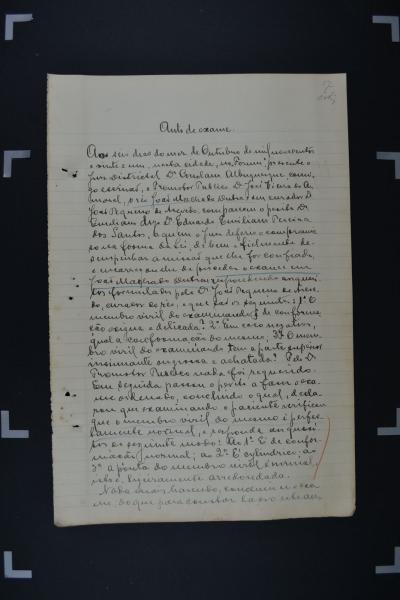 Auto de exame.
Aos seis dias do mez de Outubro de mil novecentos
e vinte e um, nesta cidade, no Forum, presente o
Juiz Districtal Dr. Albuquerque, comi-
go escrivão, o Promotor Publico Dr. José Vieira do A-
maral, o réo João Machado Dutra e seu curador Dr.
José Pequeno de Azevedo, compareceu o perito Dr.
Eduardo Emiliano Pereira
dos Santos, a quem o Juiz deferiu o compromis-
so na forma da lei, de bem e fielmente de-
sempenhar a missão que lhe foi confiada,
e encarregou-lhe de proceder o exame em
João Machado Dutra, respondendo aos quesi-
tos formulados pelo Dr. José Pequeno de Azeve-
do, curador do réo, e que são os seguintes: 1º O
membro viril do examinando é de conforma-
ção exigua e delicada? 2º Em caso negativo,
qual a conformação do mesmo; 3º O mem-
bro viril do examinando tem a parte superior
grossa e achatada? Pelo Dr.
Promotor Publico nada foi requerido.
Em seguida passou o perito a fazer o exa-
me ordenado, concluido o qual, decla-
rou que examinando o paciente verificou
que o membro viril do mesmo é perfei-
tamente normal, e responde aos quesi-
tos do seguinte modo: Ao 1º É de confor-
mação normal; ao 2º É cylindrico; ao
3º a ponta do membro viril é normal,
isto é, ligeiramente arredondada.
Nada mais havendo, concluiu-se o exa-
me, do que para constar lavro este au-